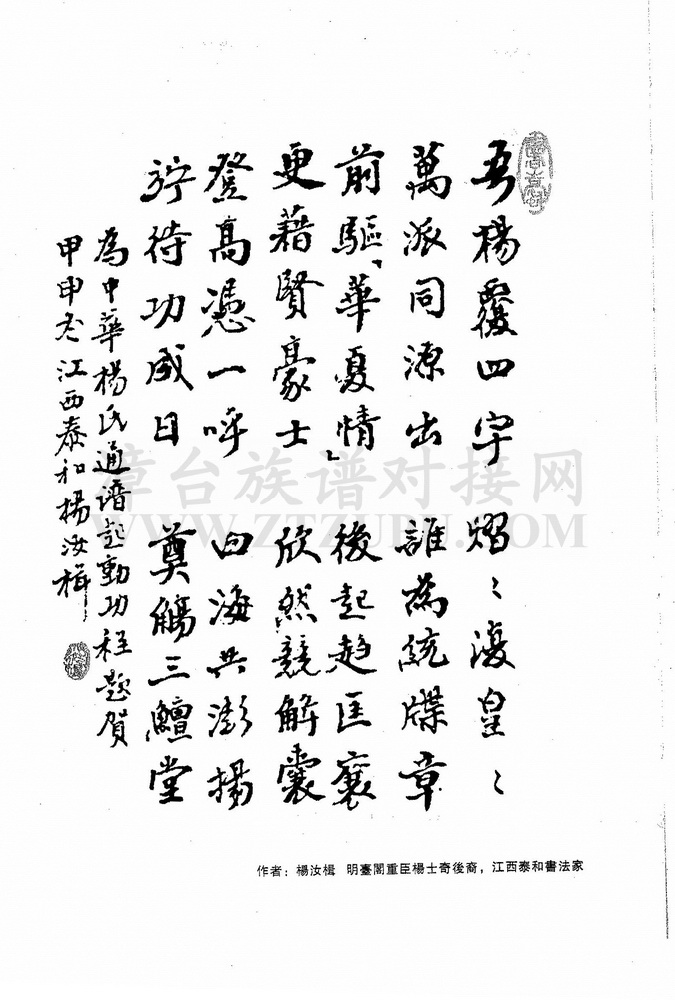 吾楊覆四宇 熠〻復皇〻
萬派同源出 誰為統牒章
前驅「華夏情」 後起趋匡襄
更藉賢豪士 欣然競解囊
登高憑一呼 四海共澎揚
竚待功成日 奠觴三鱣堂
為中華楊氏通譜起動功程題賀
甲申冬江西泰和楊汝楫
章台族谱对接网
WWW.ZTZUPU.COM
作者：楊汝楫 明臺閣重臣楊士奇後裔，江西泰和書法家